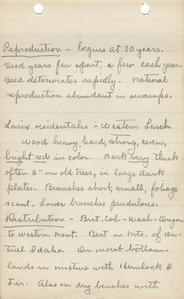 Reproduction - begins at 30 years.
Seed years far apart, a few each year.
Seed deteriorates rapidly. Natural
reproduction abundant in swamps.
Larix occidentales - Western Larch
Wood heavy, hard, strong, even,
bright red in color. Bark very thick
often 6" on old trees, in large dark
plates. Branches short, small, foliage
scant. Lower branches pendulous.
Distribution - Brit. Col. - Wash - Oregon
to Western Mont. Best in Mts. of cen-
tral Idaho. On moist bottom-
lands in mixture with Hemlock &
Fir. Also on dry benches with